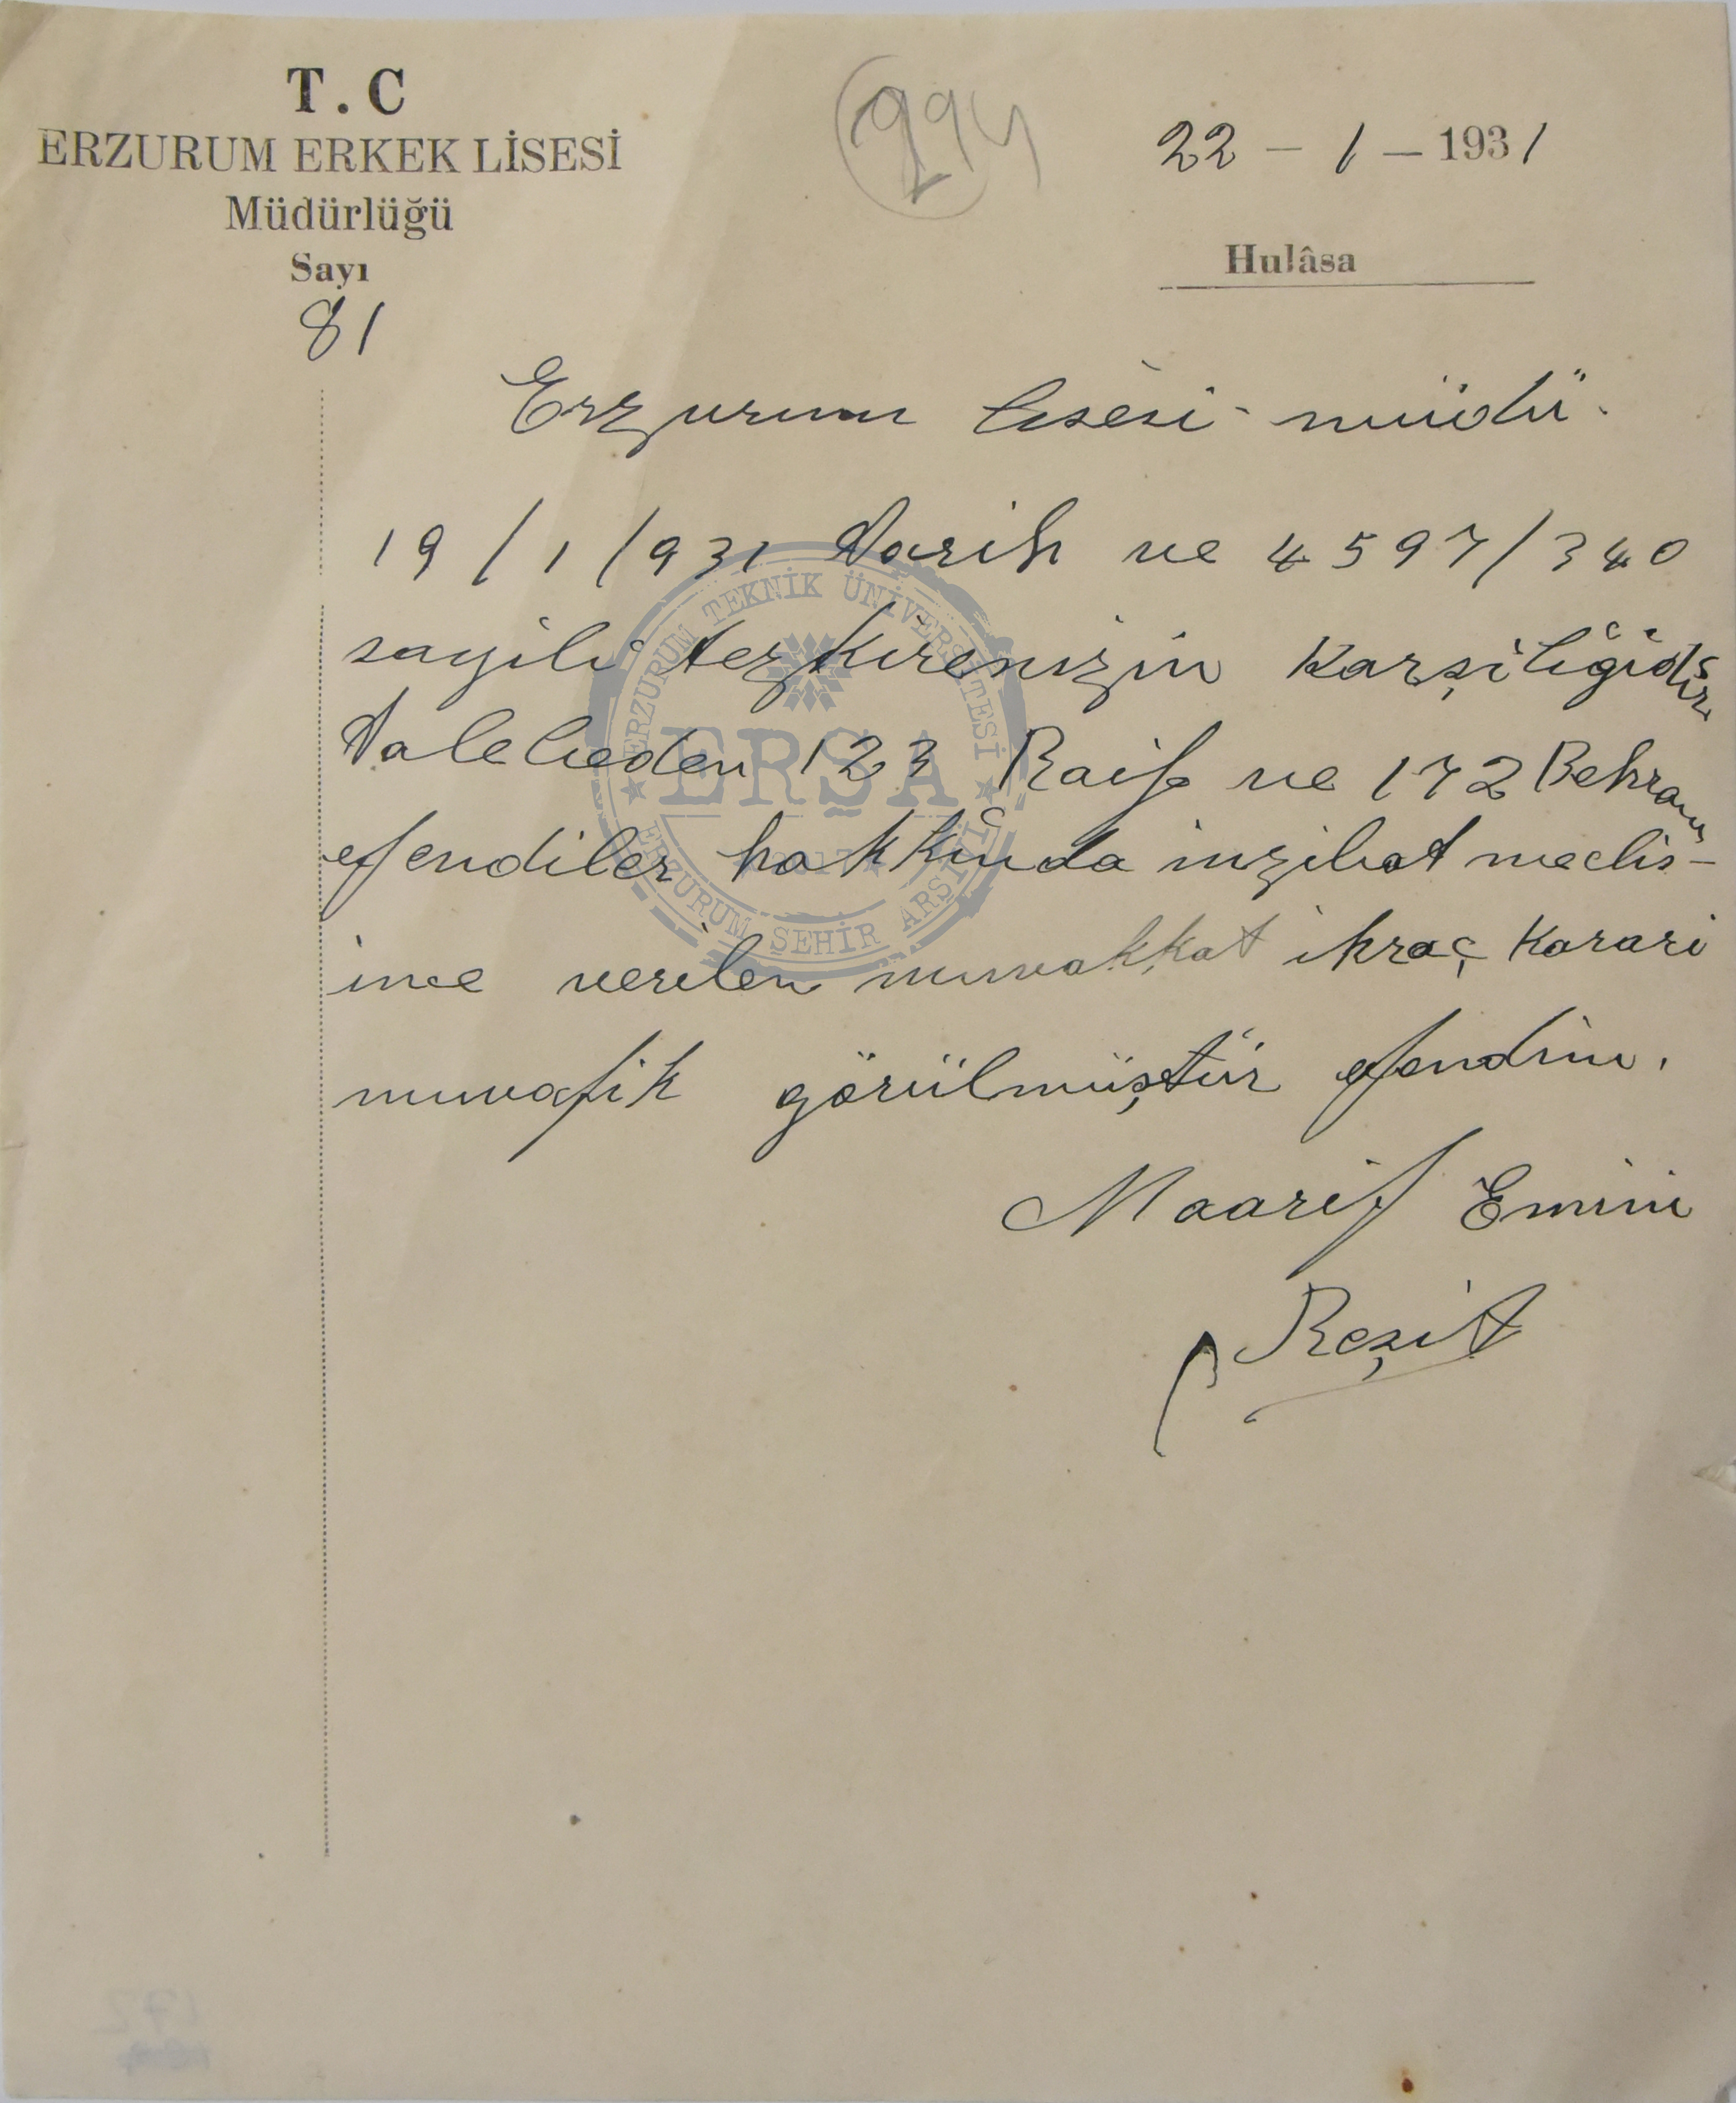 T.C
ERZURUM ERKEK LİSESİ
Müdürlüğü
Sayı
81
294
22 – 1 – 1931
Hulâsa
Erzurum lisesi müdü.
19/1/931 tarih ve 4597/340
sayili tezkirenizin karşiliğidir
Talebeden 123 Raif ve 172 Behram
efendiler hakkinda inzibat meclis-
ince verilen muvakkat ihraç karari
muvafik görülmüştür efendim.
Maarif Emini
Reşit
ERZURUM TEKNİK ÜNİVERSİTESİ
ERŞA
2017
ERZURUM ŞEHİR ARŞİVİ
172